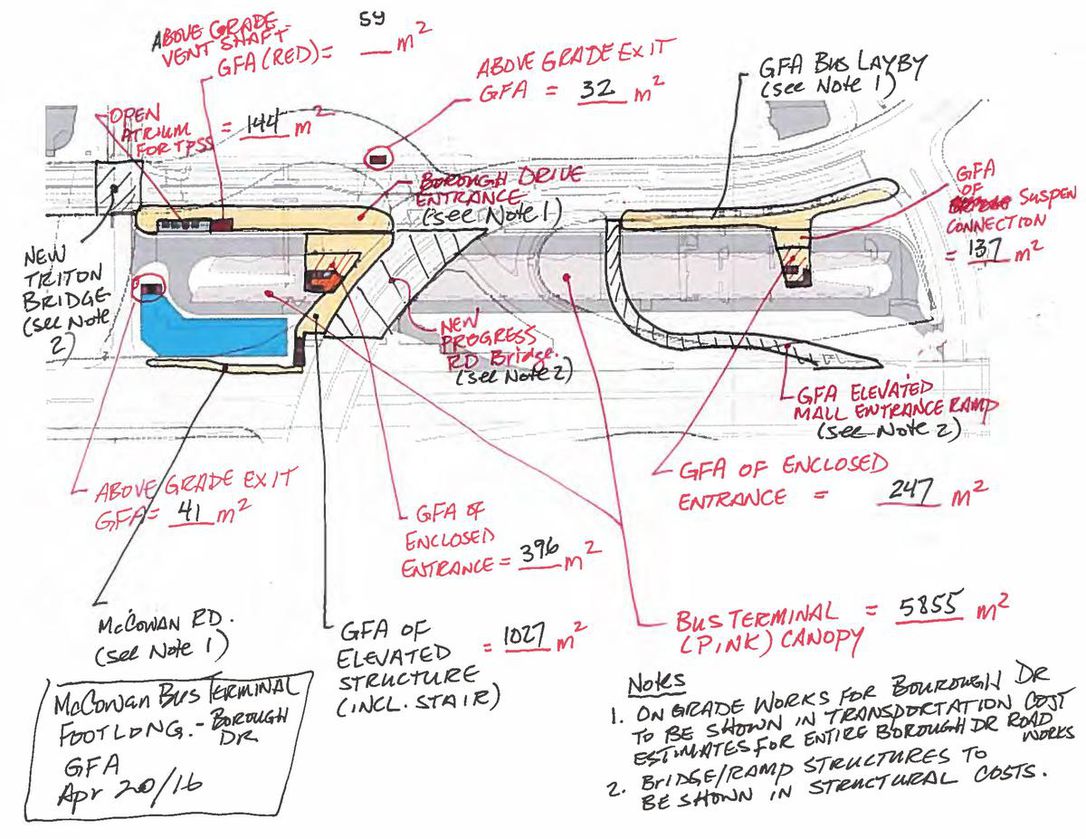 ABOVE GRADE
VENT SHAFT
GFA (RED) = 59 m²
ABOVE GRADE EXIT
GFA = 32 m²
GFA BUS LAYBY
(see Note 1)
OPEN
ATRIUM = 144 m²
FOR TPSS
BOROUGH DRIVE
ENTRANCE
(see Note 1)
GFA
OF
SUSPEN
CONNECTION
= 137 m²
NEW
TRITON
BRIDGE
(see Note
2)
NEW
PROGRESS
RD Bridge.
(see Note 2)
GFA ELEVATED
MALL ENTRANCE RAMP
(see Note 2)
ABOVE GRADE EXIT
GFA = 41 m²
GFA OF
ENCLOSED
ENTRANCE = 396 m²
GFA OF ENCLOSED
ENTRANCE = 247 m²
McCOWAN RD.
(see Note 1)
GFA OF
ELEVATED = 1027 m²
STRUCTURE
(INCL. STAIR)
BUS TERMINAL = 5855 m²
(PINK) CANOPY
McCOWAN BUS TERMINAL
FOOTLONG. - BOROUGH
DR
GFA
Apr 20/16
Notes
1. ON GRADE WORKS FOR BOUROUGH DR
TO BE SHOWN IN TRANSPORTATION COST
ESTIMATES FOR ENTIRE BOROUGH DR ROAD
WORKS
2. BRIDGE/RAMP STRUCTURES TO
BE SHOWN IN STRUCTURAL COSTS.